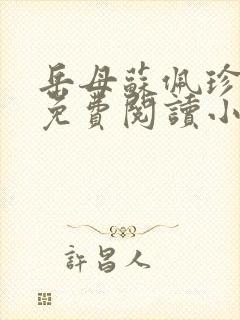 岳母蘇佩珍
免費閱讀小
許昌人